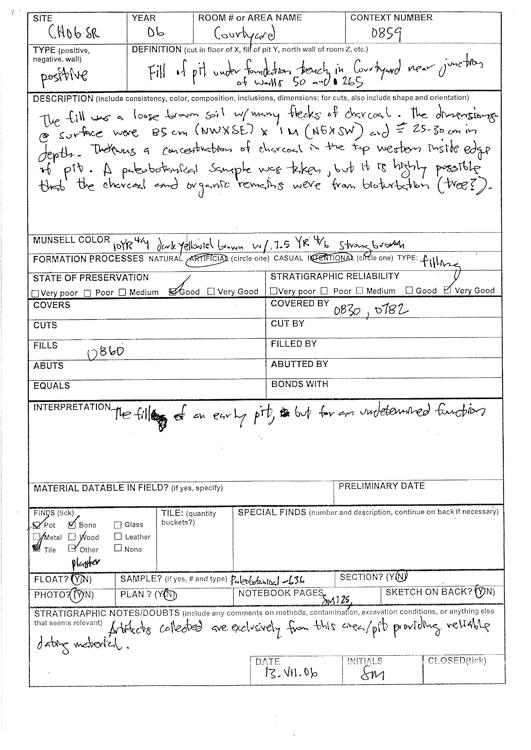 SITE YEAR ROOM # or AREA NAME CONTEXT NUMBER
CH06SR 06 Courtyard 0859
TYPE (positive, negative, wall) DEFINITION (cut in floor of X, fill of pit Y, north wall of room Z, etc.)
positive Fill of pit under foundation trench in Courtyard near junction
of walls 50 and 265
DESCRIPTION (include consistency, color, composition, inclusions, dimensions; for cuts, also include shape and orientation)
The fill was a loose brown soil w/ many flecks of charcoal. The dimensions
@ surface were 85cm (NWXSE) x 1M (NEXSW) and 25-30 cm in
depth. There was a concentration of charcoal in the top western inside edge
of pit. A paleobotanical sample was taken, but it is highly possible
that the charcoal and organic remains were from bioturbation (tree?).
MUNSELL COLOR 10YR 4/4 dark yellowish brown w/ 7.5 YR 4/6 strong brown
FORMATION PROCESSES NATURAL ARTIFICIAL (circle one) CASUAL INTENTIONAL (circle one) TYPE: filling
STATE OF PRESERVATION STRATIGRAPHIC RELIABILITY
☐ Very poor ☐ Poor ☐ Medium ☑ Good ☐ Very Good ☐ Very poor ☐ Poor ☐ Medium ☐ Good ☑ Very Good
COVERS COVERED BY 0830, 0782
CUTS CUT BY
FILLS 0860 FILLED BY
ABUTS ABUTTED BY
EQUALS BONDS WITH
INTERPRETATION The fill of an early pit, but for an undetermined function
MATERIAL DATABLE IN FIELD? (if yes, specify) PRELIMINARY DATE
FINDS (tick) TILE: (quantity buckets?) SPECIAL FINDS (number and description, continue on back if necessary)
☑ Pot ☑ Bone ☐ Glass
☑ Metal ☐ Wood ☐ Leather
☑ Tile ☑ Other ☐ None
plaster
FLOAT? (Y/N) SAMPLE? (if yes, # and type) Paleobotanical -636 SECTION? (Y/N)
PHOTO? (Y/N) PLAN? (Y/N) NOTEBOOK PAGES SM125, SKETCH ON BACK? (Y/N)
STRATIGRAPHIC NOTES/DOUBTS (include any comments on methods, contamination, excavation conditions, or anything else
that seems relevant) Artifacts collected are exclusively from this area/pit providing reliable
dating material.
DATE INITIALS CLOSED(tick)
13.VII.06 SM